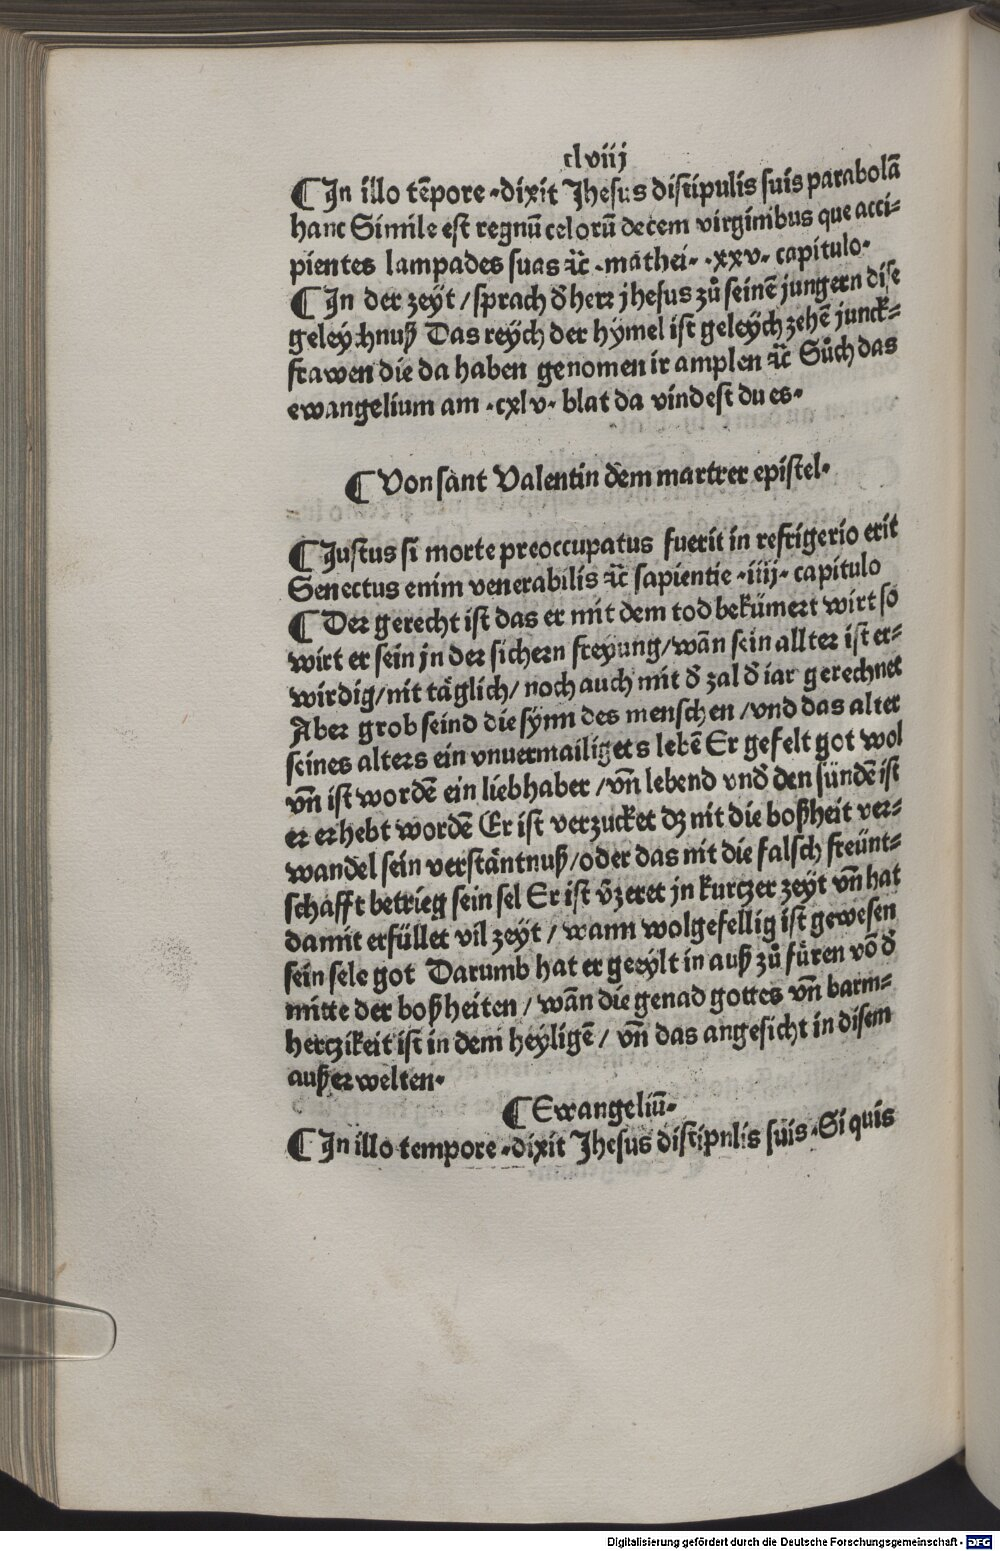 clviij
¶ In illo tēpore ·dixit Jhesus discipulis suis parabolā
hanc Simile est regnū celorū decem virginibus que acci⸗
pientes lampades suas ⁊c̄ ·mathei· ·xxv· capitulo·
¶ In der zeyt / sprach d̄ herr jhesus zů seinē jungern dise
geleychnuß Das reych der hymel ist geleych zehē junck⸗
frawen die da haben genomen ir amplen ⁊c̄ Sůch das
ewangelium am ·cxlv· blat da vindest du es·
¶ Von sant Valentin dem martrer epistel·
¶ Justus si morte preoccupatus fuerit in refrigerio erit
Senectus enim venerabilis ⁊c̄ sapientie ·iiij· capitulo
¶ Der gerecht ist das er mit dem tod bekümert wirt so
wirt er sein jn der sichern freyung / wān sein allter ist er⸗
wirdig / nit täglich / noch auch mit d̄ zal d̄ iar gerechnet
Aber grob seind die synn des menschen / vnd das alter
seines alters ein vnuermailigets lebē Er gefelt got wol
vn̄ ist wordē ein liebhaber / vn̄ lebend vnd̄ den sündē ist
er erhebt wordē Er ist verzucket dz nit die boßheit ver⸗
wandel sein verstäntnuß / oder das nit die falsch freünt⸗
schafft betrieg sein sel Er ist v̄zeret jn kurczer zeyt vn̄ hat
damit erfüllet vil zeyt / wann wolgefellig ist gewesen
sein sele got Darumb hat er geeylt in auß zů füren vō d̄
mitte der boßheiten / wān die genad gottes vn̄ barm⸗
herczikeit ist in dem heyligē / vn̄ das angesicht in disem
außerwelten·
¶ Ewangeliū·
¶ In illo tempore ·dixit Jhesus discipulis suis ·Si quis
Digitalisierung gefördert durch die Deutsche Forschungsgemeinschaft - DFG